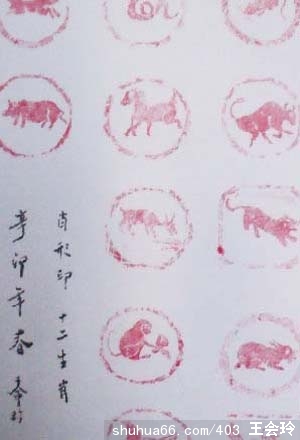 肖形印 十二生肖
辛卯年春
shuhua66.com/403 王会玲